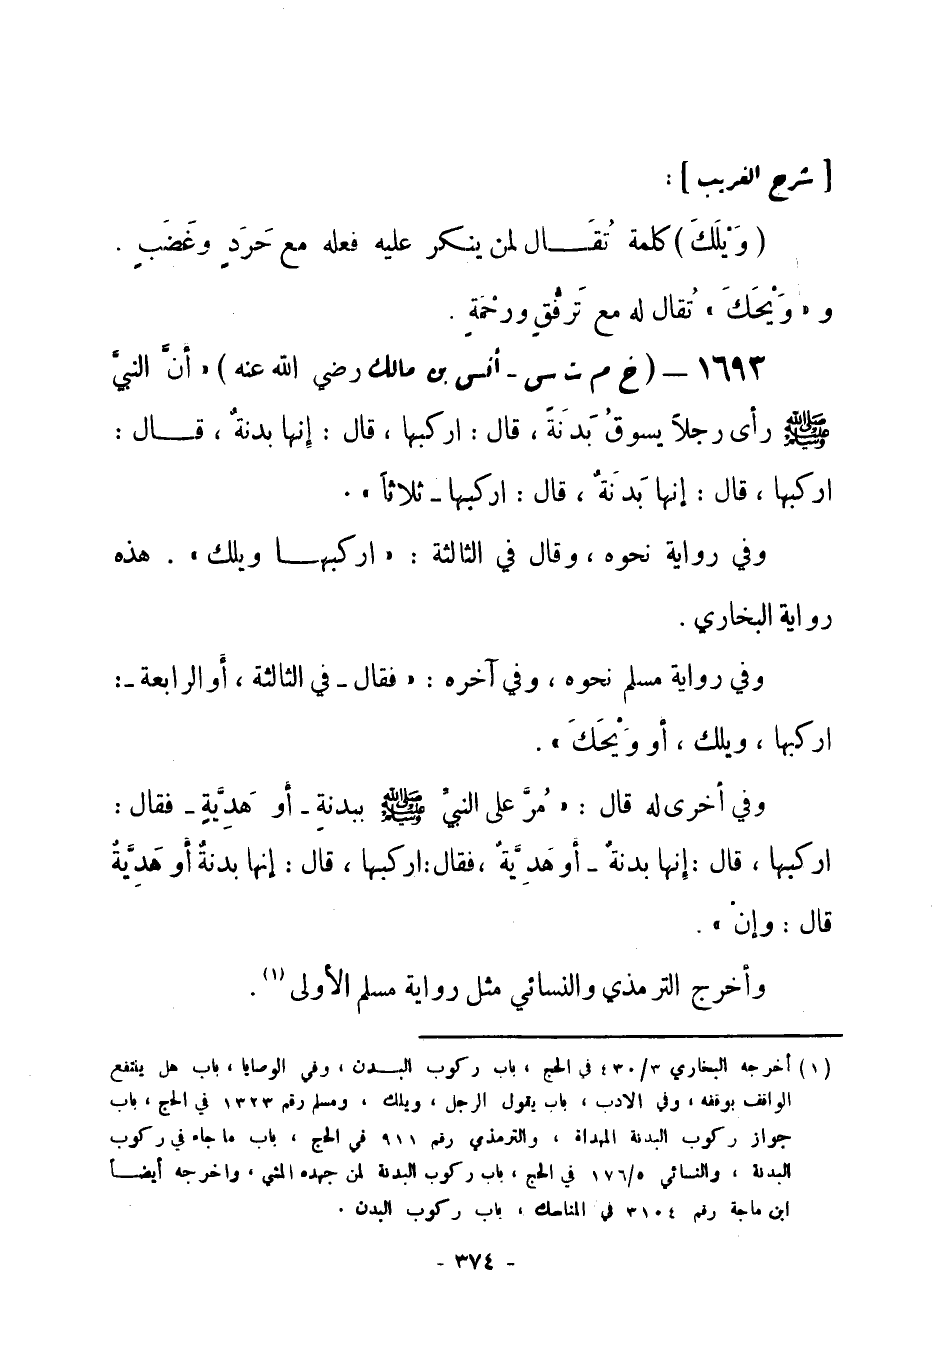 [ شرح الغريب ] :
( وَيْلَكَ ) كلمة تُقَــال لمن ينكر عليه فعله مع حَرَدٍ وغَضَبٍ .
و « وَيْحَكَ » تُقال له مع تَرفُّقٍ ورحْمَةٍ .
١٦٩٣ – ( خ م ت س - أنس بن مالك رضي الله عنه ) « أنَّ النبيَّ
ﷺ رأى رجلاً يسوقُ بَدَنَةً ، قال : اركبها ، قال : إنها بدنةٌ ، قــال :
اركبها ، قال : إنها بَدَنَةٌ ، قال : اركبها - ثلاثاً » .
وفي رواية نحوه ، وقال في الثالثة : « اركبهــا ويلك » . هذه
رواية البخاري .
وفي رواية مسلم نحوه ، وفي آخره : « فقال - في الثالثة ، أو الرابعة - :
اركبها ، ويلك ، أو وَيْحَكَ » .
وفي أخرى له قال : « مُرَّ على النبيِّ ﷺ ببدنةٍ - أو هَدِيَّةٍ - فقال :
اركبها ، قال : إنها بدنةٌ - أو هَدِيَّةٌ ، فقال : اركبها ، قال : إنها بدنةٌ أو هَدِيَّةٌ
قال : وإنْ » .
وأخرج الترمذي والنسائي مثل رواية مسلم الأولى (١) .
(١) أخرجه البخاري ٤٣٠/٣ في الحج ، باب ركوب البــدن ، وفي الوصايا ، باب هل ينتفع
الواقف بوقفه ، وفي الادب ، باب يقول الرجل ، ويلك ، ومسلم رقم ١٣٢٣ في الحج ، باب
جواز ركوب البدنة المهداة ، والترمذي رقم ٩١١ في الحج ، باب ما جاء في ركوب
البدنة ، والنسائي ١٧٦/٥ في الحج ، باب ركوب البدنة لمن جهده المشي ، واخرجه أيضــاً
ابن ماجة رقم ٣١٠٤ في المناسك ، باب ركوب البدن .
- ٣٧٤ -